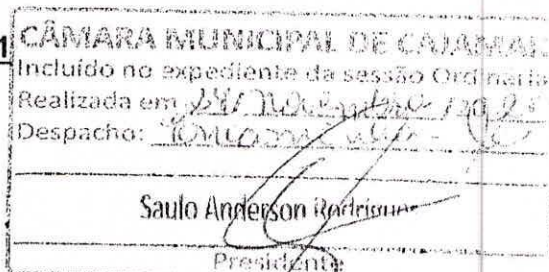 1
CÂMARA MUNICIPAL DE CAJAMAR
Incluído no expediente da sessão Ordinária
Realizada em 24/ Novembro
Despacho:
Saulo Anderson Rodrigues
Presidente